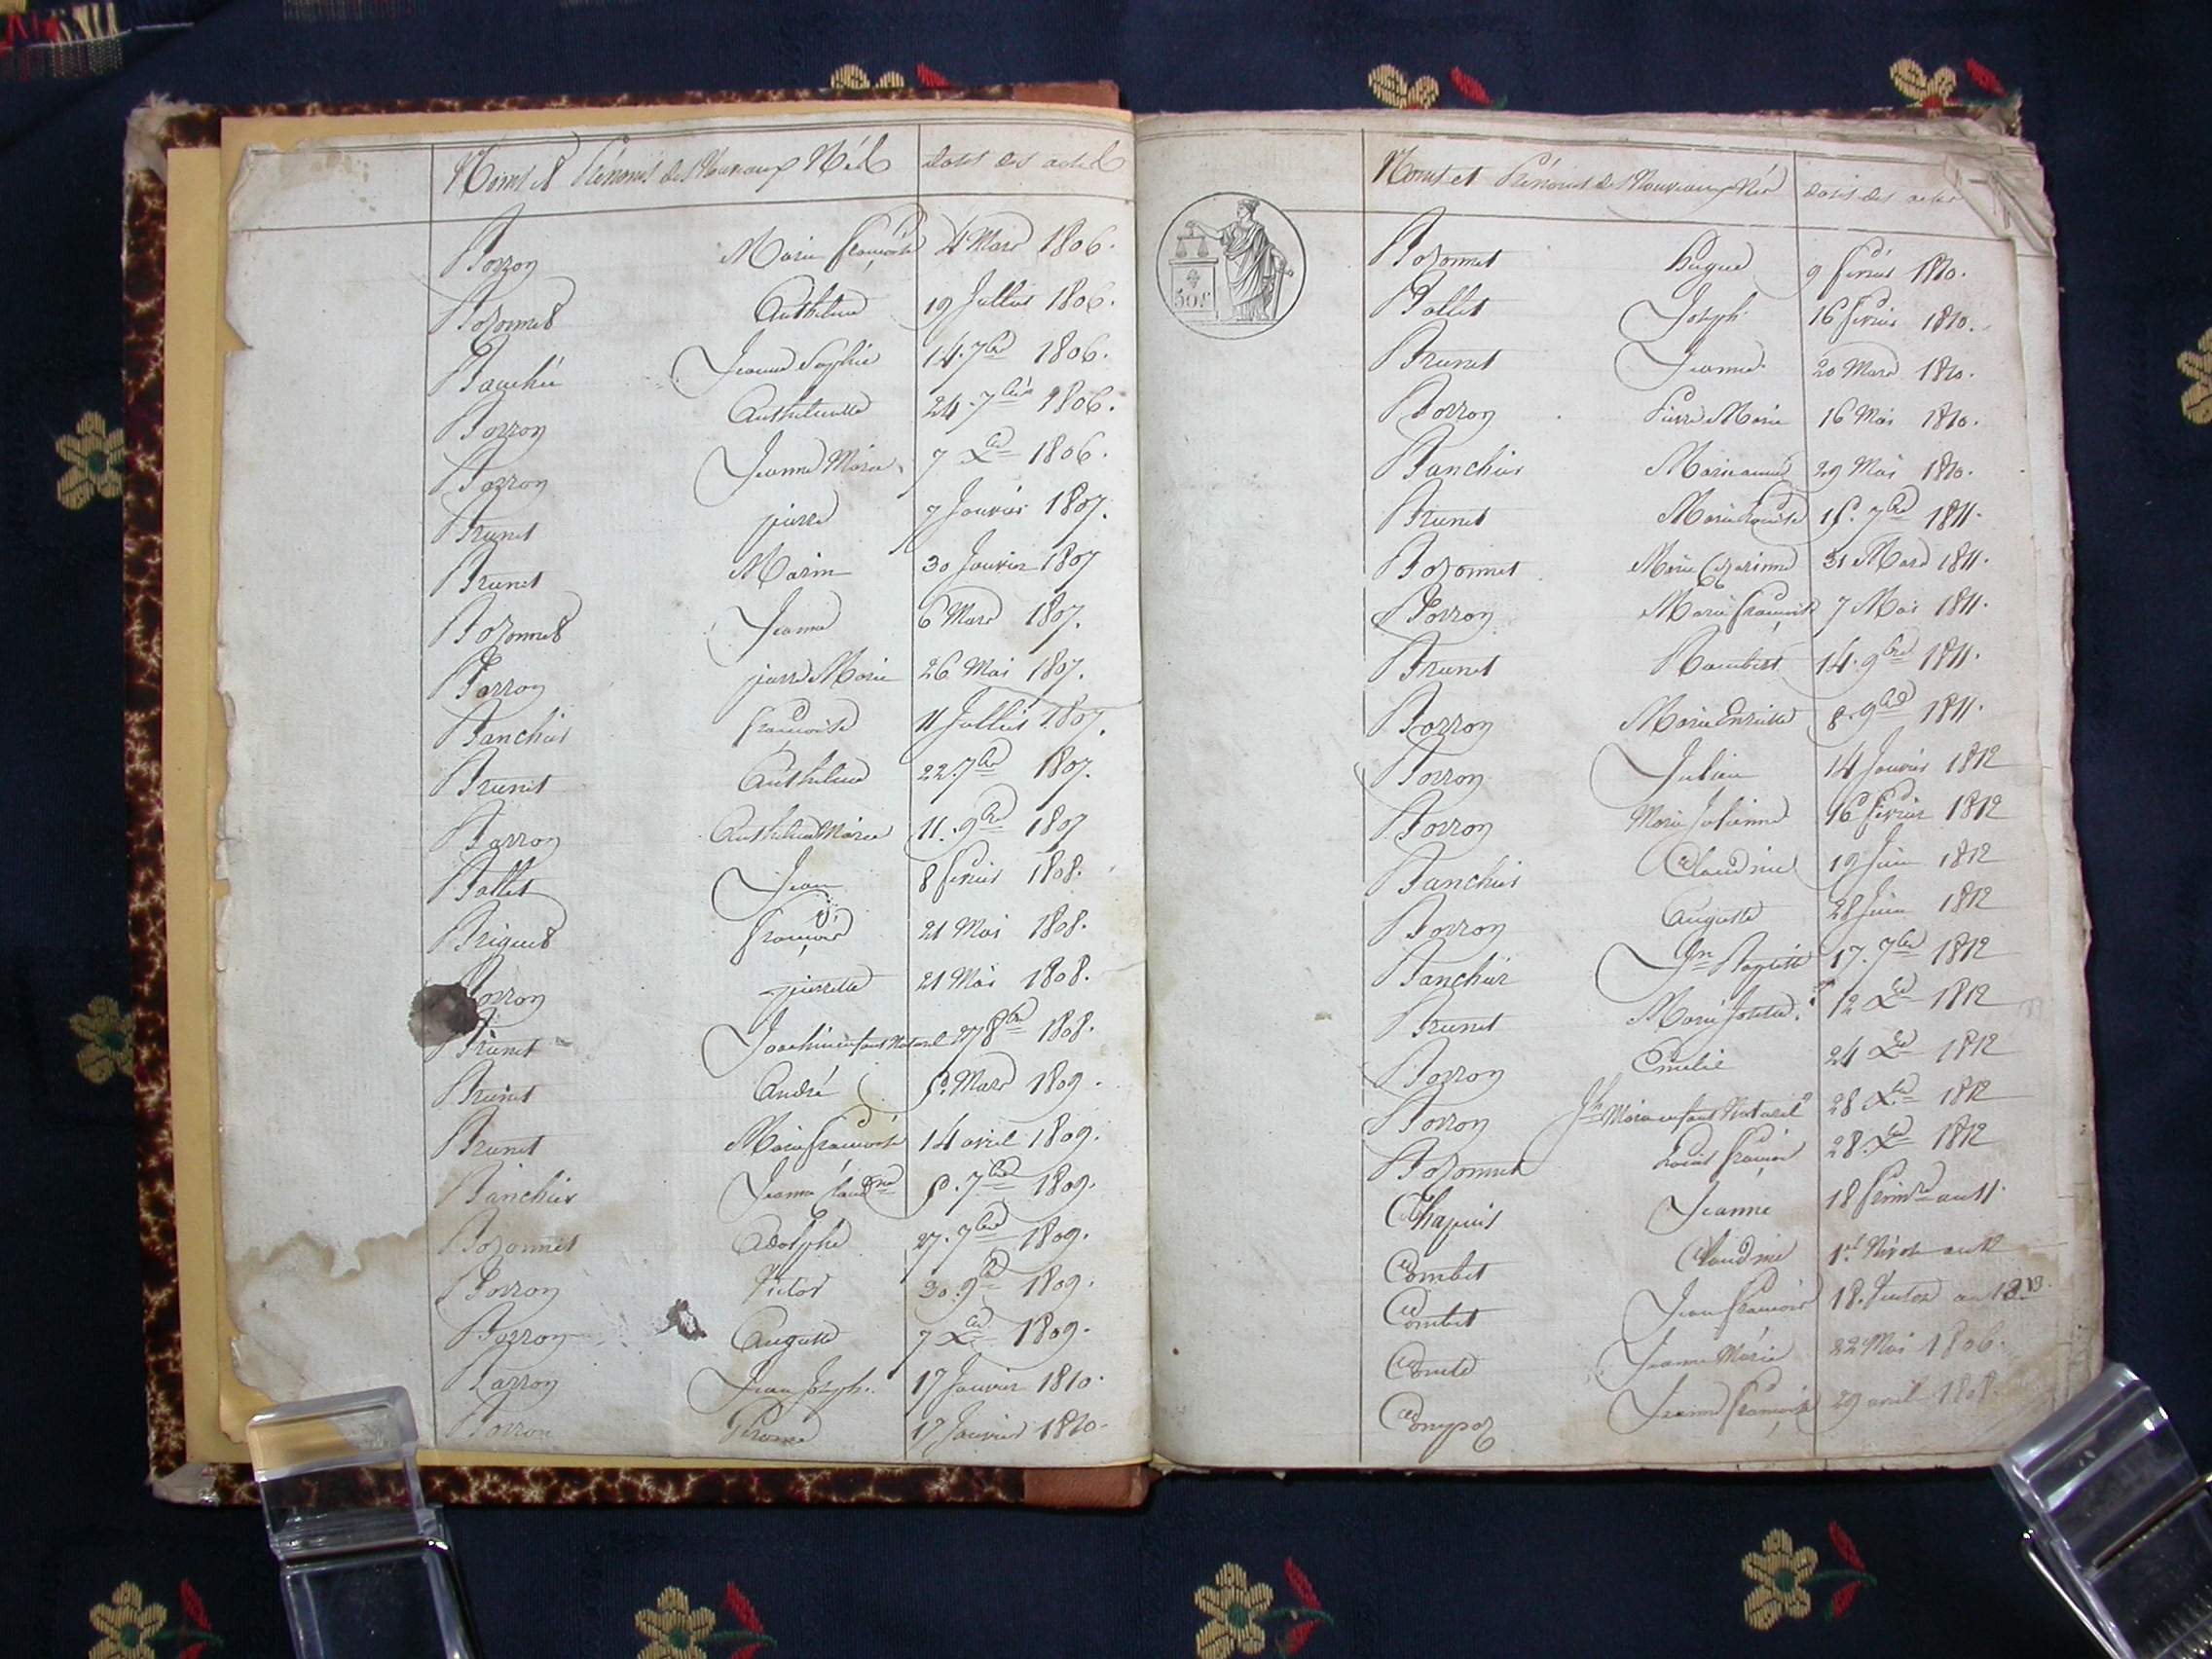 Noms et Prénoms des Nouveaux Nés dates des actes
Borron Marie françoise 4 Mars 1806.
Bozonnet Anthelme 19 Juillet 1806.
Jeanne Sophie 14. 7bre 1806.
Borron Anthelmette 24. 7bre 1806.
Borron Jeanne Marie 7 Xbre 1806.
Brunet pierre 7 Janvier 1807.
Brunet Marin 30 Janvier 1807
Bozonnet Jeanne 6 Mars 1807.
Borron pierre Marie 26 Mai 1807.
Banchet françoise 11 Juillet 1807.
Brunet Anthelme 22. 7bre 1807.
Borron Anthelme Marie 11. 9bre 1807
Bollet Jean 8 fevrier 1808.
Briguet françois 21 Mai 1808.
Borron pierrette 21 Mai 1808.
Brunet Joachim enfant Naturel 27 8bre 1808.
Brunet André Mars 1809.
Brunet Marie françoise 14 avril 1809.
Banchet Jeanne Claudne 7bre 1809.
Bozonnet Adolphe 27. 7bre 1809.
Borron Victor 30. 9bre 1809.
Borron Auguste 7 Xbre 1809.
Borron Jean Joseph. 17 Janvier 1810.
Borron Gerome 17 Janvier 1810.
Noms et Prénoms des Nouveaux Nés dates des actes
50 c
Bozonnet hugue 9 fevrier 1810.
Bollet Joseph 16 fevrier 1810.
Brunet Jeanne 20 Mars 1810.
Borron Pierre Marie 16 Mai 1810.
Banchet Marieanne 29 Mai 1810.
Brunet Marie Louise 7bre 1811.
Bozonnet Marie Cezarinne 31 Mars 1811.
Borron Marie françoise 7 Mai 1811.
Brunet Rambert 14. 9bre 1811.
Borron Marie Enriette 8. 9bre 1811.
Borron Julien 14 Janvier 1812
Borron Marie Julienne 16 fevrier 1812
Banchet Claudine 19 Juin 1812
Borron Auguste 28 Juin 1812
Banchet Jn Baptiste 17. 7bre 1812
Brunet Marie Josette 12 Xbre 1812
Borron Emelie 24 Xbre 1812
Borron Jh Marie enfant Naturel 28 Xbre 1812
Bozonnet Louis françois 28. Xbre 1812
Chapuis Jeanne 18 frimre an 11.
Combet Claudine 1er Nivose an 12
Combet Jean françois 18. Ventose an
Comte Jeanne Marie 22 Mai 1806.
Compoz Jeanne françoise 29 avril 1808.